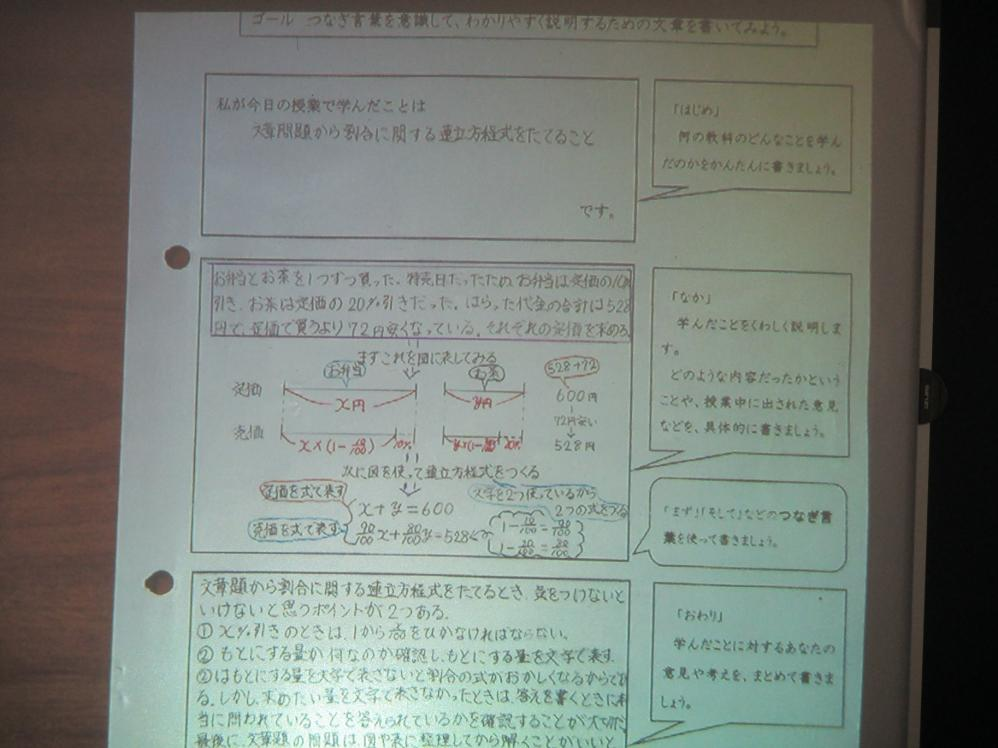 ゴール つなぎ言葉を意識して、わかりやすく説明するための文章を書いてみよう。
私が今日の授業で学んだことは
文章問題から割合に関する連立方程式をたてること
です。
「はじめ」
何の教科のどんなことを学ん
だのかをかんたんに書きましょう。
お弁当とお茶を1つずつ買った。特売日だったため、お弁当は定価の10%
引き、お茶は定価の20%引きだった。はらった代金の合計は528
円で、定価で買うより72円安くなっている。それぞれの定価を求める。
まずこれを図に表してみる
お弁当 お茶 528+72
定価 x円 y円 600円
72円安い
売価 x×(1-10/100) 10% y×(1-20/100) 20% 528円
次に図を使って連立方程式をつくる
定価を式で表す x+y=600
文字を2つ使っているから
2つの式をつくる
売価を式で表す 90/100x+80/100y=528
1-10/100=90/100
1-20/100=80/100
「なか」
学んだことをくわしく説明しま
す。
どのような内容だったかという
ことや、授業中に出された意見
などを、具体的に書きましょう。
「まず」「そして」などのつなぎ言
葉を使って書きましょう。
文章題から割合に関する連立方程式をたてるとき、気をつけないと
いけないと思うポイントが2つある。
① x%引きのときは、1からx/100をひかなければならない。
② もとにする量が何なのか確認し、もとにする量を文字で表す。
②はもとにする量を文字で表さないと割合の式がおかしくなるからであ
る。しかし、求めたい量を文字で表さなかったときは、答えを書くときに本
当に問われていることを答えられているかを確認することが大切だ。
最後に、文章題の問題は、図や表に整理してから解くことがいいと
「おわり」
学んだことに対するあなたの
意見や考えを、まとめて書きま
しょう。